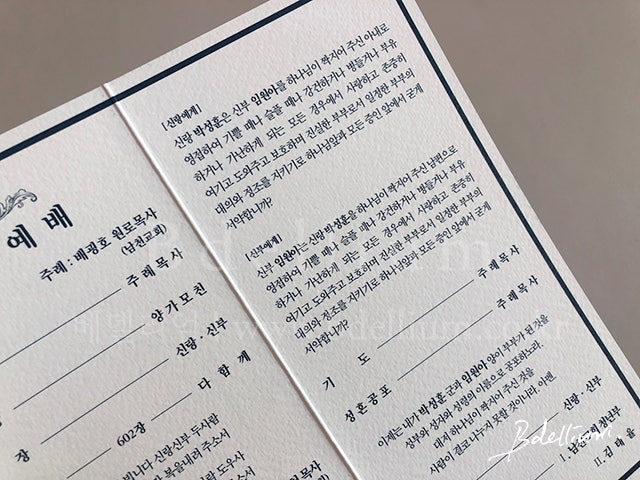 예 배
주례 : 배굉호 원로목사
(남천교회)
주 례 목 사
양 가 모 친
신랑 · 신부
다 함 께
장
602장
니다 신랑신부 두사람
복을내려 주소서
도우사
주소서
[신랑에게]
신랑 박성훈은 신부 임원아를 하나님이 짝지어 주신 아내로
영접하여 기쁠 때나 슬플 때나 강건하거나 병들거나 부유
하거나 가난하게 되는 모든 경우에서 사랑하고 존중히
여기고 도와주고 보호하며 진실한 부부로서 일정한 부부의
대의와 정조를 지키기로 하나님앞과 모든 증인 앞에서 굳게
서약합니까?
[신부에게]
신부 임원아는 신랑 박성훈을 하나님이 짝지어 주신 남편으로
영접하여 기쁠 때나 슬플 때나 강건하거나 병들거나 부유
하거나 가난하게 되는 모든 경우에서 사랑하고 존중히
여기고 도와주고 보호하며 진실한 부부로서 일정한 부부의
대의와 정조를 지키기로 하나님앞과 모든 증인 앞에서 굳게
서약합니까?
기 도 주 례 목 사
성 혼 공 포 주 례 목 사
이제는 내가 박성훈 군과 임원아 양이 부부가 된 것을
성부와 성자와 성령의 이름으로 공포하노라.
대저 하나님이 짝지어 주신 것을
사람이 결코 나누지 못할 것이니라. 아멘.
신랑 · 신부
I. 남천교회 청년부
II. 김 태 율
Bdellium